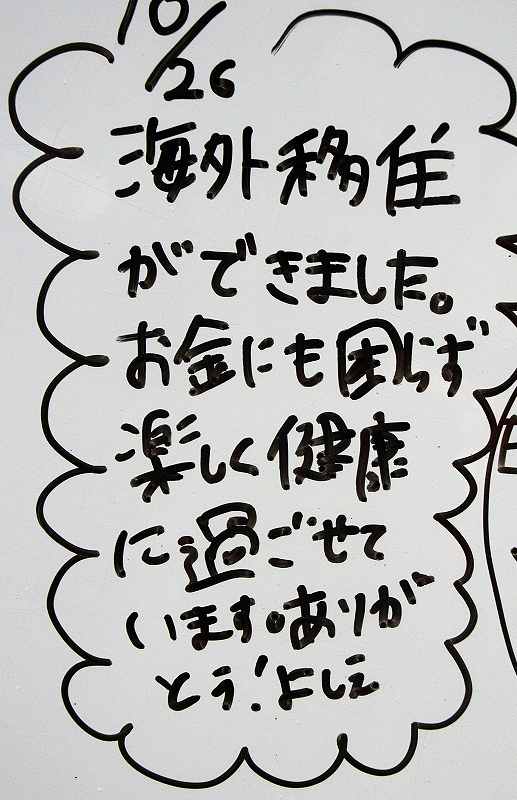 10/26
海外移住
ができました。
お金にも困らず
楽しく健康
に過ごせて
います。ありが
とう!よしえ